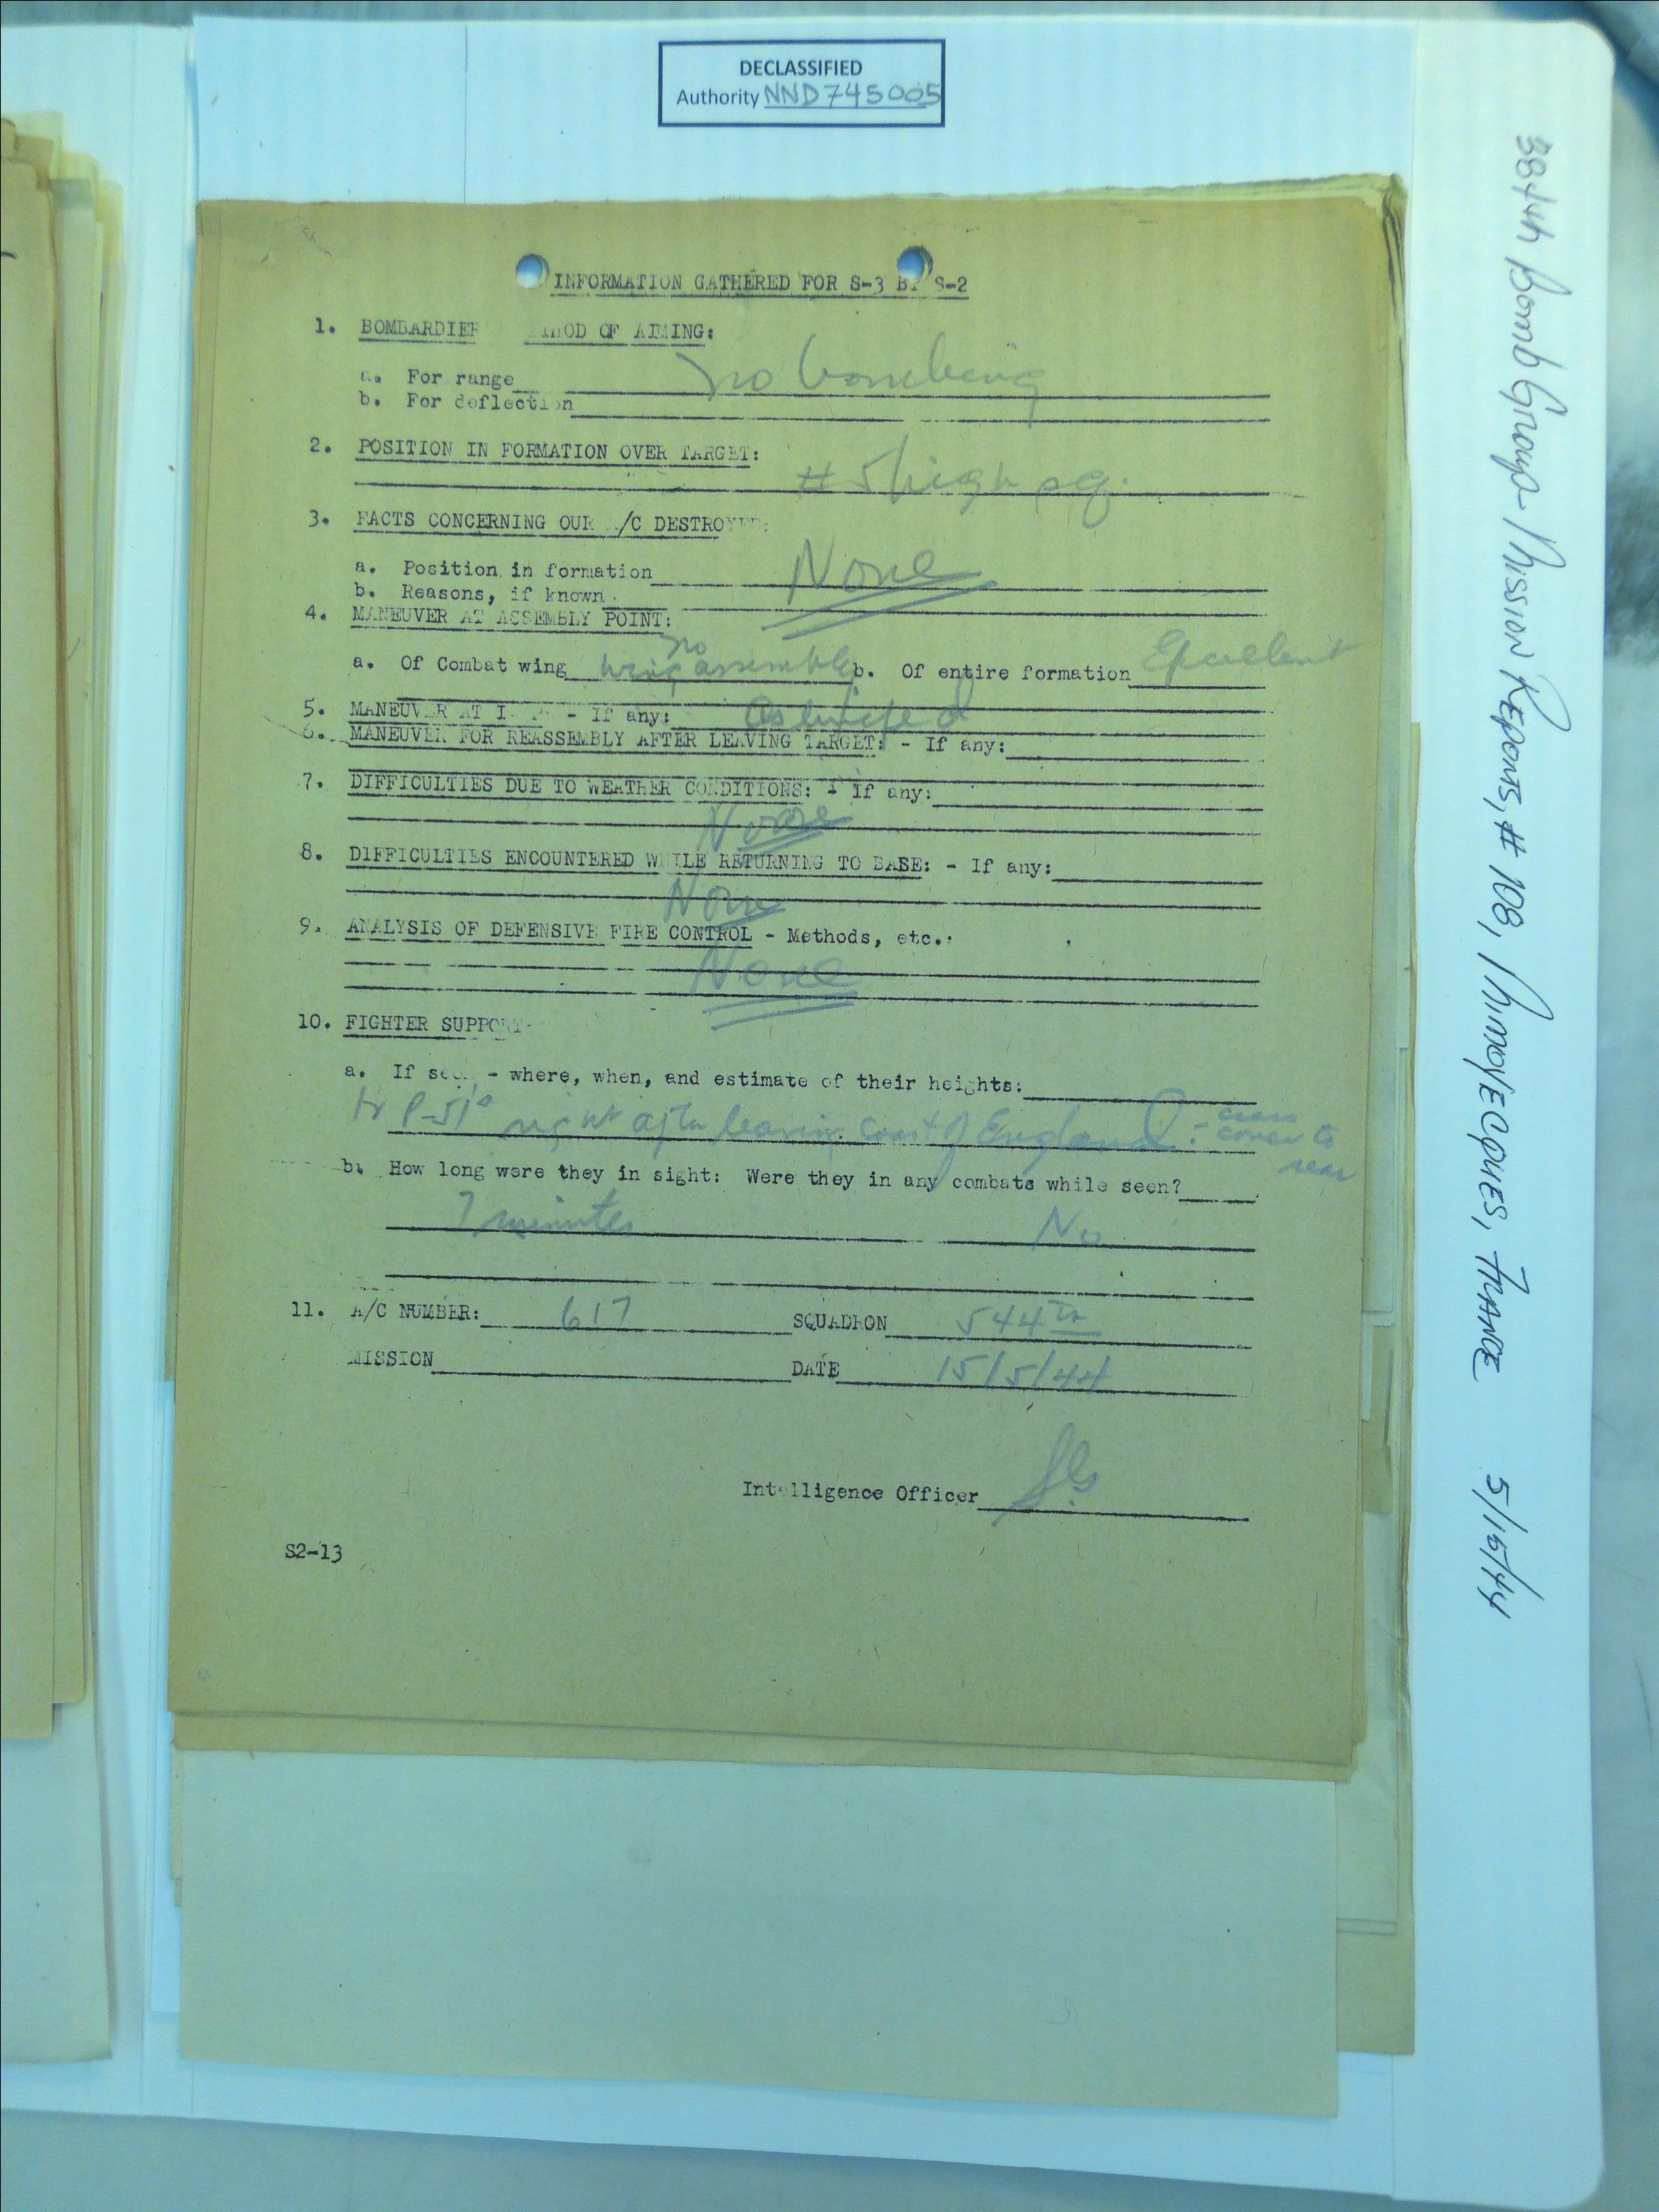 DECLASSIFIED
Authority NND745005
INFORMATION GATHERED FOR S-3 BY S-2
1. BOMBARDIER METHOD OF AIMING:
a. For range no bombing
b. For deflection
2. POSITION IN FORMATION OVER TARGET:
# 5 high sq.
3. FACTS CONCERNING OUR A/C DESTROYED:
a. Position in formation None
b. Reasons, if known
4. MANEUVER AT ASSEMBLY POINT:
a. Of Combat wing no wing assembly b. Of entire formation Excellent
5. MANEUVER AT I. P. - If any: As briefed
6. MANEUVER FOR REASSEMBLY AFTER LEAVING TARGET: - If any:
7. DIFFICULTIES DUE TO WEATHER CONDITIONS: - If any:
None
8. DIFFICULTIES ENCOUNTERED WHILE RETURNING TO BASE: - If any:
None
9. ANALYSIS OF DEFENSIVE FIRE CONTROL - Methods, etc.:
None
10. FIGHTER SUPPORT
a. If seen - where, when, and estimate of their heights:
P-51's right after leaving coast of England - cover to
rear
b. How long were they in sight: Were they in any combats while seen?
7 minutes No
11. A/C NUMBER: 617 SQUADRON 544th
MISSION DATE 15/5/44
Intelligence Officer
S2-13
384th Bomb Group Mission Reports, # 108, Mimoyecques, France 5/15/44